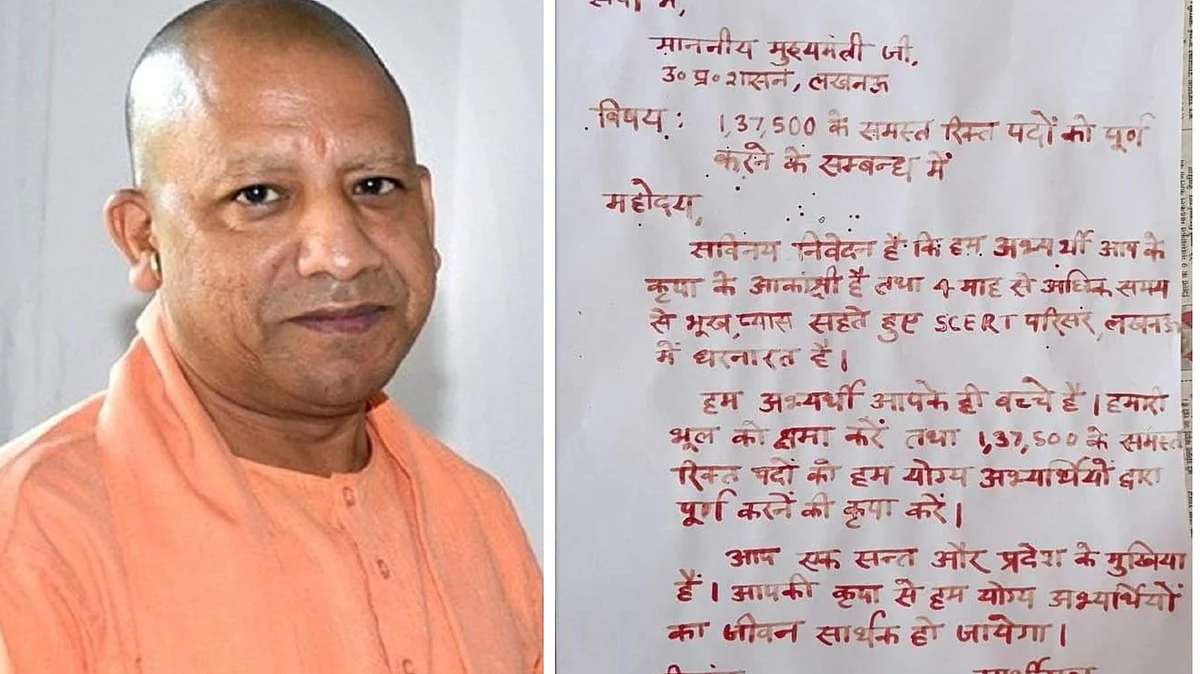 सेवा में,
माननीय मुख्यमंत्री जी,
उ० प्र० शासन, लखनऊ
विषय: 1,37,500 के समस्त रिक्त पदों को पूर्ण
करने के सम्बन्ध में
महोदय,
सविनय निवेदन है कि हम अभ्यर्थी आप के
कृपा के आकांक्षी है तथा 4 माह से अधिक समय
से भूख, प्यास सहते हुए SCERT परिसर, लखनऊ
में धरनारत है।
हम अभ्यर्थी आपके ही बच्चे है। हमारी
भूल को क्षमा करें तथा 1,37,500 के समस्त
रिक्त पदों को हम योग्य अभ्यर्थियों द्वारा
पूर्ण करनें की कृपा करें।
आप एक सन्त और प्रदेश के मुखिया
हैं। आपकी कृपा से हम योग्य अभ्यर्थियों
का जीवन सार्थक हो जायेगा।